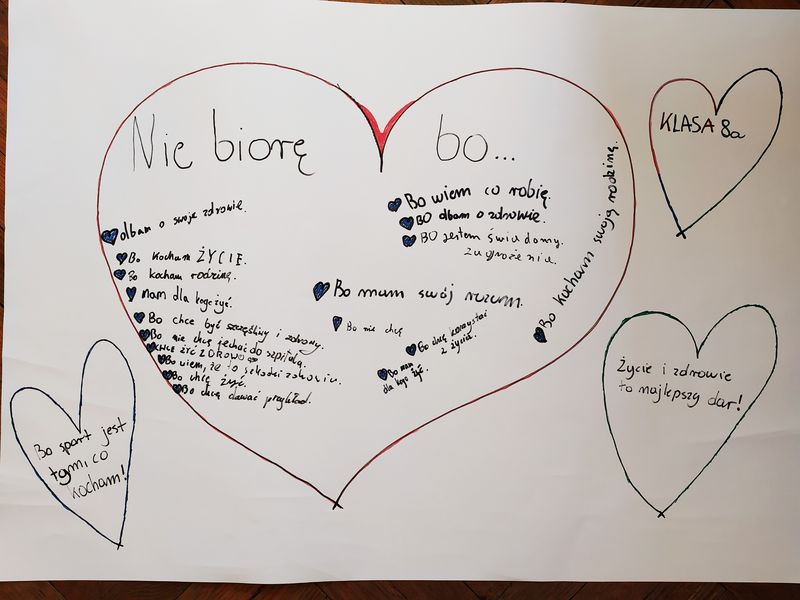 Nie biorę bo...
dbam o swoje zdrowie.
Bo kocham ŻYCIE.
Bo kocham rodzinę.
mam dla kogo żyć.
Bo chce być szczęśliwy i zdrowy.
Bo nie chcę jechać do szpitala.
CHCE ŻYĆ ZDROWO
Bo wiem, że to szkodzi zdrowiu.
Bo chcę żyć.
Bo chcę dawać przykład.
Bo wiem co robię.
BO dbam o zdrowie.
BO jestem świadomy
zagrożenia.
Bo mam swój rozum.
Bo nie chcę
Bo chcę korzystać
z życia.
Bo mam
dla kogo żyć.
Bo kocham swoją rodzinę.
KLASA 8a
Życie i zdrowie
to najlepszy dar!
Bo sport jest
tym, co
kocham!